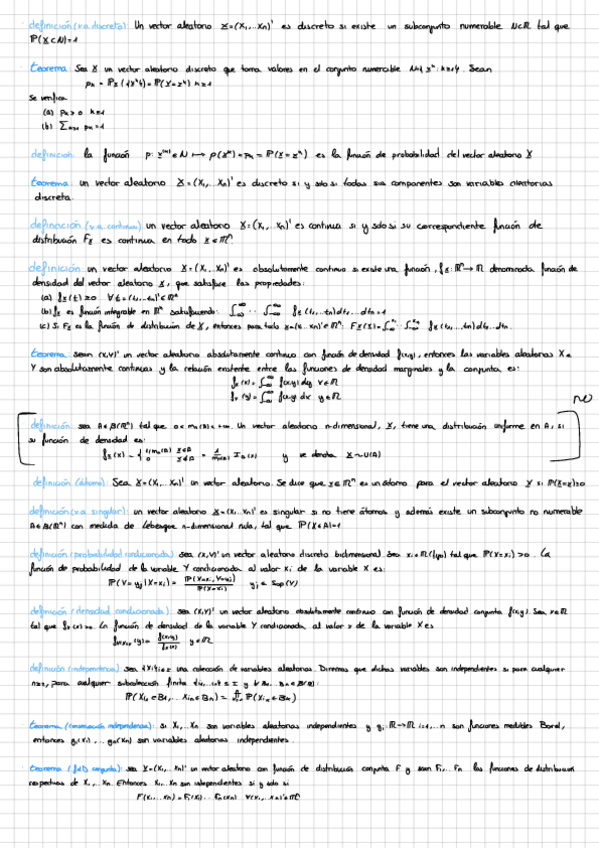 definición (v.a. discreto): Un vector aleatorio X=(X₁,...Xn)' es discreto si existe un subconjunto numerable N⊂ℝ tal que
ℙ(X⊂N)=1
teorema: Sea X un vector aleatorio discreto que toma valores en el conjunto numerable Sean
Se verifica
(a) pₖ>0 k≥1
(b) pₖ=1
definición: la función es la función de probabilidad del vector aleatorio X
teorema: un vector aleatorio X=(X₁, Xn)' es discreto si y sólo si todas sus componentes son variables aleatorias
discreta.
definición (v.a. continuo): un vector aleatorio X=(X₁, Xn)' es continuo si y sólo si su correspondiente función de
distribución Fx es continua en todo x∈ℝⁿ
definición: un vector aleatorio X=(X₁, Xn)' es absolutamente continuo si existe una función, fx:ℝⁿ→ℝ denominada función de
densidad del vector aleatorio X, que satisface las propiedades:
(a) fx(t)≥0 ∀t=(t₁,...tn)'∈ℝⁿ
(b) fx es función integrable en ℝⁿ satisfaciendo: fx(t₁,...,tn)dt₁...dtn=1
(c) Si Fx es la función de distribución de X, entonces para todo x=(x₁...xn)'∈ℝⁿ: fx(t₁,...,tn)dt₁...dtn.
teorema: sean (X,Y)' un vector aleatorio absolutamente continuo con función de densidad f(x,y), entonces las variables aleatorias X e
Y son absolutamente continuas y la relación existente entre las funciones de densidad marginales y la conjunta, es:
fx(x)=∫ f(x,y)dy x∈ℝ
fy(y)=∫ f(x,y)dx y∈ℝ
NO
definición: sea A∈β(ℝⁿ) tal que 0<mn(A)<+∞. Un vector aleatorio n-dimensional, X, tiene una distribución uniforme en A, si
su función de densidad es:
y se denota X~U(A)
definición (átomo): Sea X=(X₁,..Xn)' un vector aleatorio. Se dice que x∈ℝⁿ es un átomo para el vector aleatorio X si ℙ(X=x)>0
definición (v.a. singular): un vector aleatorio X=(X₁,..Xn)' es singular si no tiene átomos y además existe un subconjunto no numerable
A∈β(ℝⁿ) con medida de Lebesgue n-dimensional nula, tal que ℙ(X∈A)=1
definición (probabilidad condicionada): sea (X,Y)' un vector aleatorio discreto bidimensional. Sea tal que ℙ(X=xi)>0. La
función de probabilidad de la Y condicionada al valor xi de la variable X es:
ℙ(Y=yj|X=xi)= ℙ(X=xi,Y=yj)/ℙ(X=xi) yj∈Sop(Y)
definición (densidad condicionada): sea (X,Y)' un vector aleatorio absolutamente continuo con función de densidad conjunta f(x,y). Sea x∈ℝ
tal que fx(x)>0. La función de densidad de la variable Y condicionada al valor x de la variable X es
f(x,y)/fx(x) y∈ℝ
definición (independencia): sea una colección de variables aleatorias. Diremos que dichas variables son independientes si para cualquier
para cualquier subcolección finita
teorema (conservación independencia): si X₁,..Xn son variables aleatorias independientes y gi:ℝ→ℝ i=1,..n son funciones medibles Borel,
entonces g₁(X₁),..,gn(Xn) son variables aleatorias independientes.
teorema (f.d.D conjunta): sea X=(X₁,..Xn)' un vector aleatorio con función de distribución conjunta F y sean F₁,..Fn las funciones de distribución
respectivas de X₁,..,Xn. Entonces X₁,..Xn son independientes si y sólo si
F(x₁,..xn)=F₁(x₁)...Fn(xn) ∀(x₁,..xn)'∈ℝⁿ